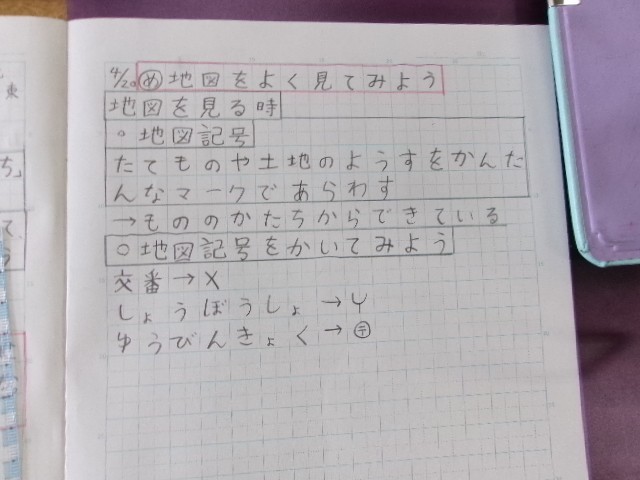 東
ち」
て
4/20 め 地図をよく見てみよう
地図を見る時
○地図記号
たてものや土地のようすをかんた
んなマークであらわす
→もののかたちからできている
○地図記号をかいてみよう
交番→X
しょうぼうしょ→Y
ゆうびんきょく→〒